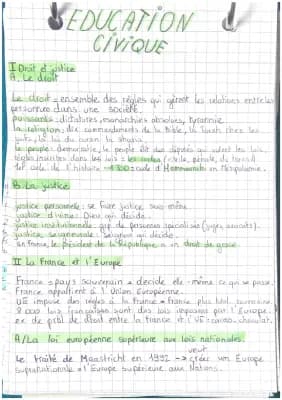 EDUCATION
CIVIQUE
I Droit et justice
A. Le droit
Le droit = ensemble des règles qui gèrent les relations entre les
personnes dans une société.
puissants: dictatures, monarchies absolues, tyrannie
la religion: dix commandements de la Bible, la Torah chez les
juifs, la loi du coran: la sharia
le peuple: démocratie, le peuple élit des députés qui votent les lois
règles inscrites dans les lois = les codes (civile, pénale, du travail)
1er code de l'histoire code d'Hammurabi en Mésopotamie.
B. La justice
justice personnelle: se faire justice soi-même
justice divine: Dieu qui décide.
justice institutionnelle: grp de personnes spécialisées (juges, avocats).
justice seigneuriale: seigneur qui décide
En France, le président de la République a un droit de grâce
II La France et l'Europe
France = pays souverain = décide elle-même ce qui se passe.
France appartient à l'Union Européenne.
UE impose des règles à la France = France plus souveraine.
8 000 lois françaises sont des lois imposées par l'Europe.
ex de de droit entre la France et l'UE = cacao-chocolat.
A/ La loi européenne supérieure aux lois nationales.
Le traité de Maastricht en 1992 -> veut créer une Europe
supranationale = l'Europe supérieure aux Nations.